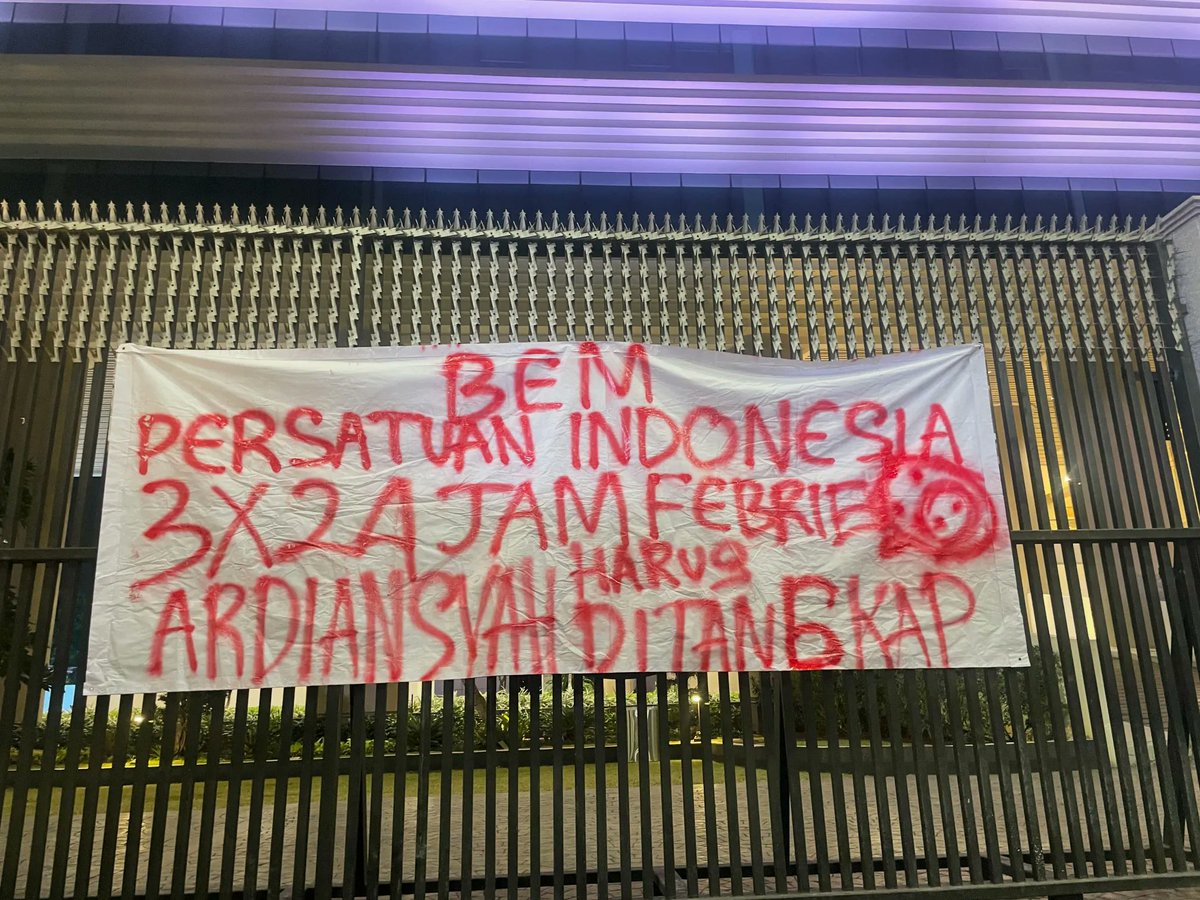 BEM
PERSATUAN INDONESIA
3X24 JAM FEBRIE
HARUS
ARDIANSYAH DITANGKAP